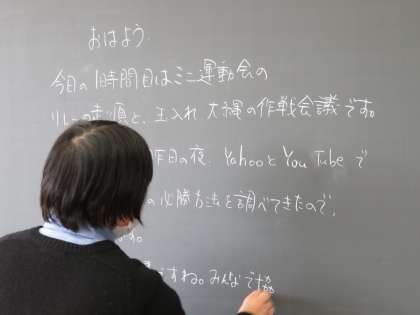 おはよう.
今日の1時間目はミニ運動会の
リレーの走順と、玉入れ 大縄の作戦会議です。
昨日の夜、YahooとYou Tubeで
の必勝方法を調べてきたので、
ます。
ですね。みんなで協